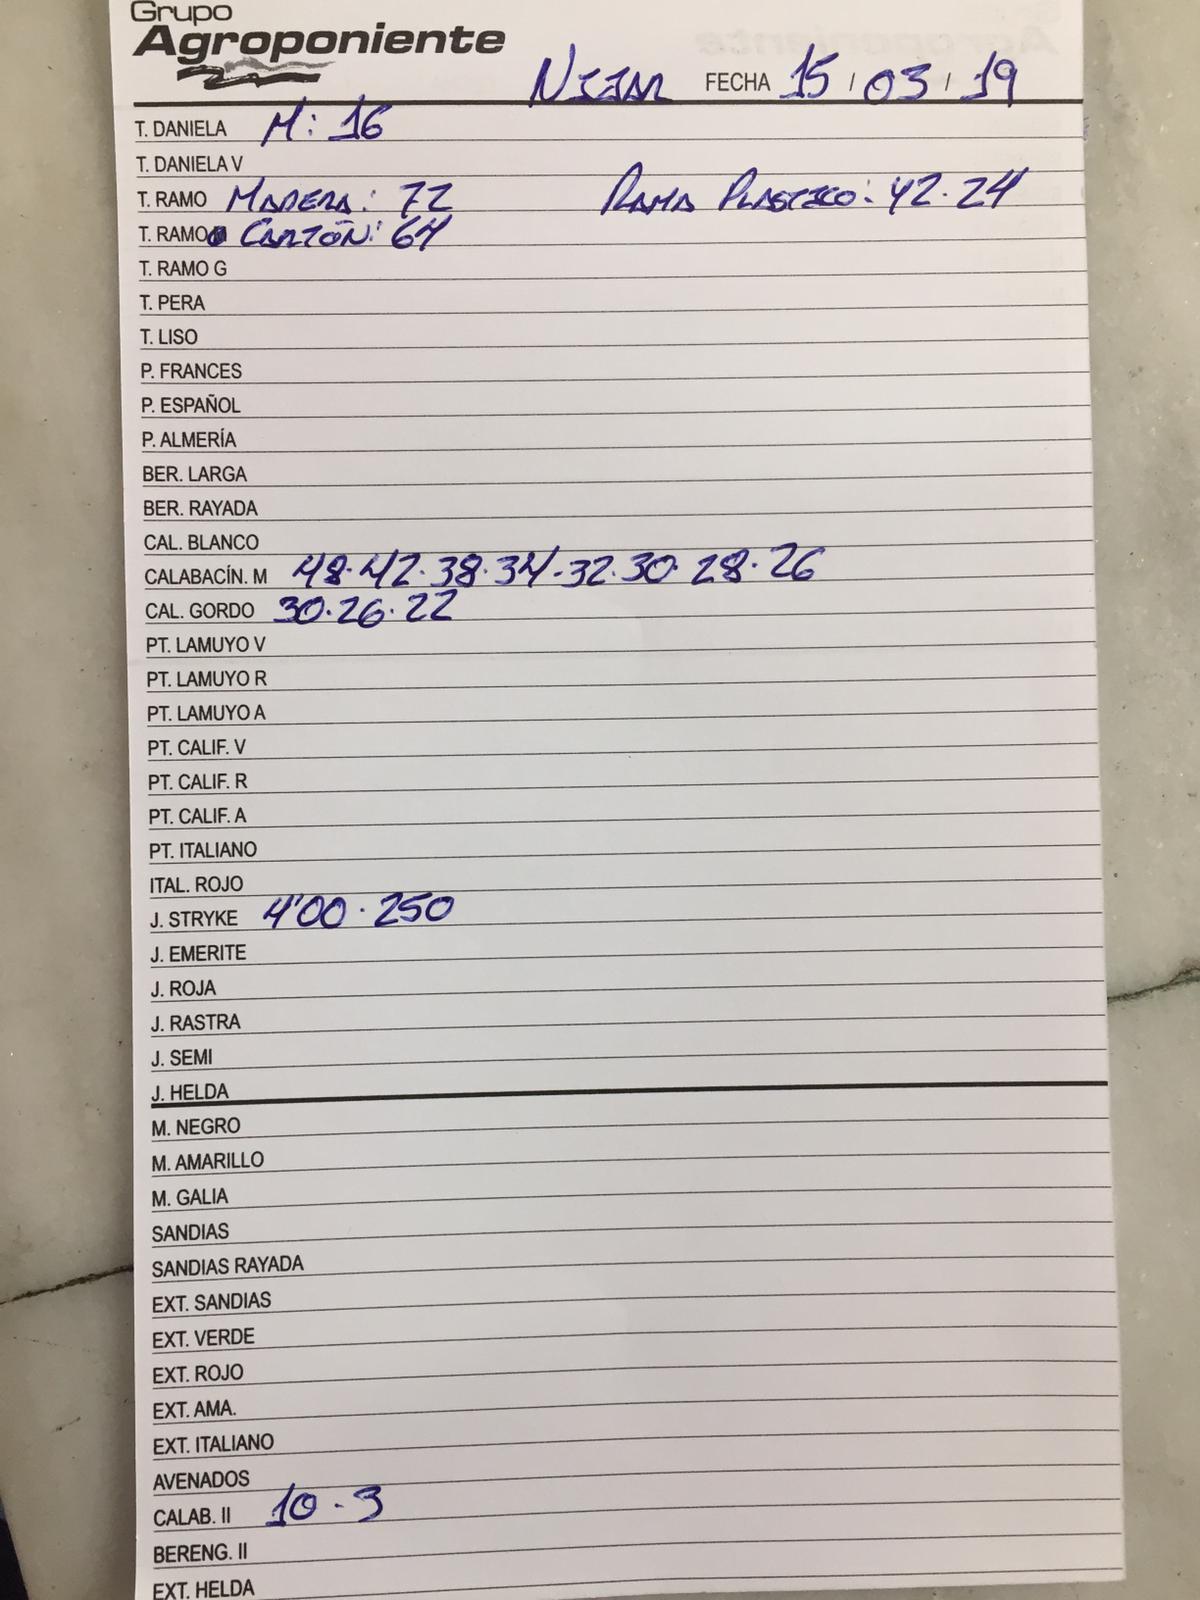 Grupo
Agroponiente
NIJAR FECHA 15 / 03 / 19
T. DANIELA M: 16
T. DANIELA V
T. RAMO MADERA: 72 RAMA PLASTICO: 42.24
T. RAMO CARTÓN: 64
T. RAMO G
T. PERA
T. LISO
P. FRANCES
P. ESPAÑOL
P. ALMERÍA
BER. LARGA
BER. RAYADA
CAL. BLANCO
CALABACÍN. M 48.42.38.34-32.30.28.26
CAL. GORDO 30.26.22
PT. LAMUYO V
PT. LAMUYO R
PT. LAMUYO A
PT. CALIF. V
PT. CALIF. R
PT. CALIF. A
PT. ITALIANO
ITAL. ROJO
J. STRYKE 4'00.250
J. EMERITE
J. ROJA
J. RASTRA
J. SEMI
J. HELDA
M. NEGRO
M. AMARILLO
M. GALIA
SANDIAS
SANDIAS RAYADA
EXT. SANDIAS
EXT. VERDE
EXT. ROJO
EXT. AMA.
EXT. ITALIANO
AVENADOS
CALAB. II 10-3
BERENG. II
EXT. HELDA